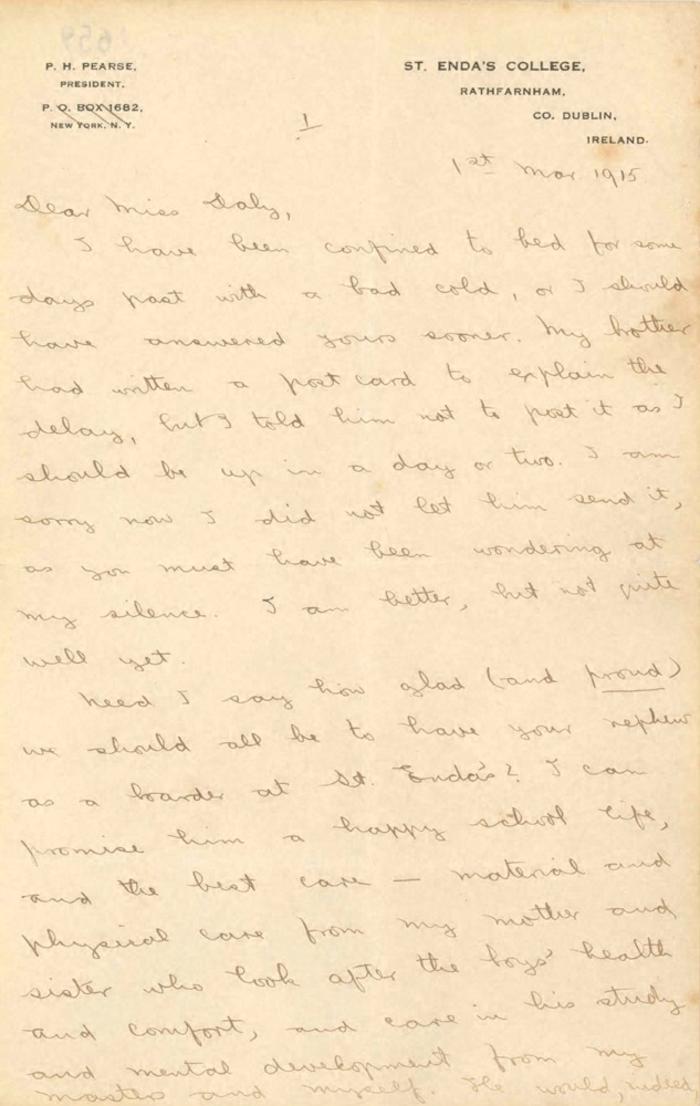 P. H. PEARSE,
PRESIDENT.
P. O. BOX 1682,
NEW YORK, N. Y.
ST. ENDA'S COLLEGE,
RATHFARNHAM,
CO. DUBLIN,
IRELAND.
1
1st Mar 1915
Dear Miss Daly,
I have been confined to bed for some
days past with a bad cold, or I should
have answered yours sooner. My brother
had written a post card to explain the
delay, but I told him not to post it as I
should be up in a day or two. I am
sorry now I did not let him send it,
as you must have been wondering at
my silence. I am better, but not quite
well yet.
Need I say how glad (and proud)
we should all be to have your nephew
as a boarder at St. Enda's? I can
promise him a happy school life,
and the best care — material and
physical care from my mother and
sister who look after the boys' health
and comfort, and care in his study
and mental development from my
masters and myself. He would, indeed